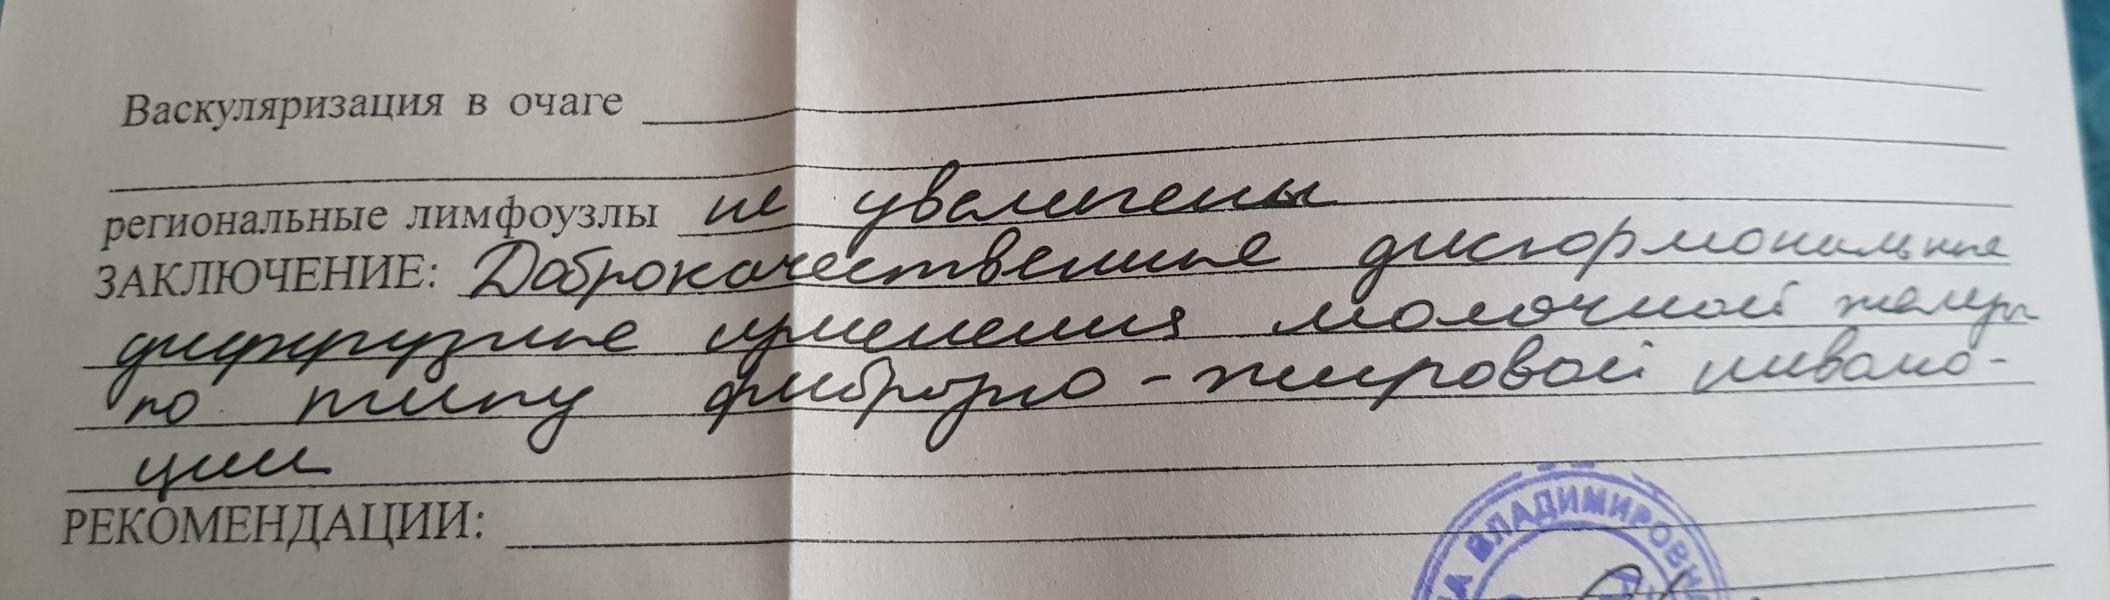 Васкуляризация в очаге
региональные лимфоузлы не увеличены
ЗАКЛЮЧЕНИЕ: Доброкачественные дисгормональные
диффузные изменения молочной железы
по типу фиброзно-жировой инволю-
ции
РЕКОМЕНДАЦИИ:
ВЛАДИМИРОВН